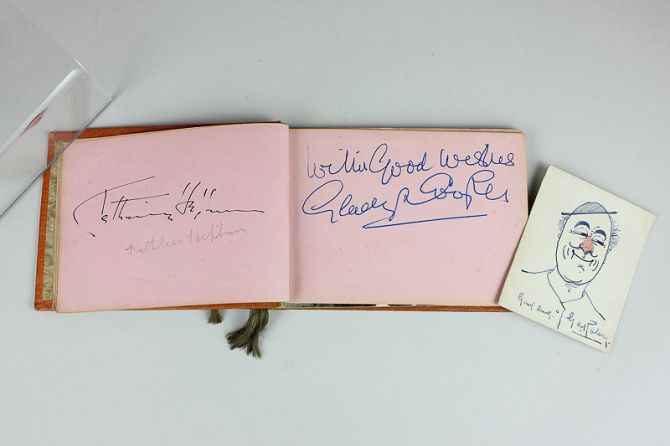 Katharine Hepburn
Kathleen Hepburn
With Good Wishes
Gladys Cooper
Good luck